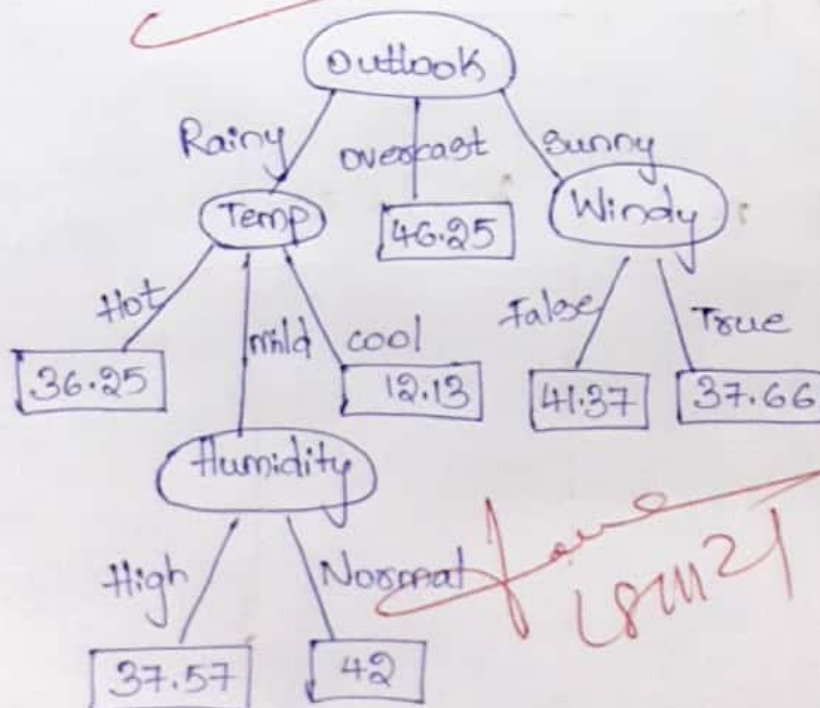 Outlook
Rainy overcast Sunny
Temp 46.25 Windy
Hot mild cool False True
36.25 12.13 41.37 37.66
Humidity
High Normal
37.57 42